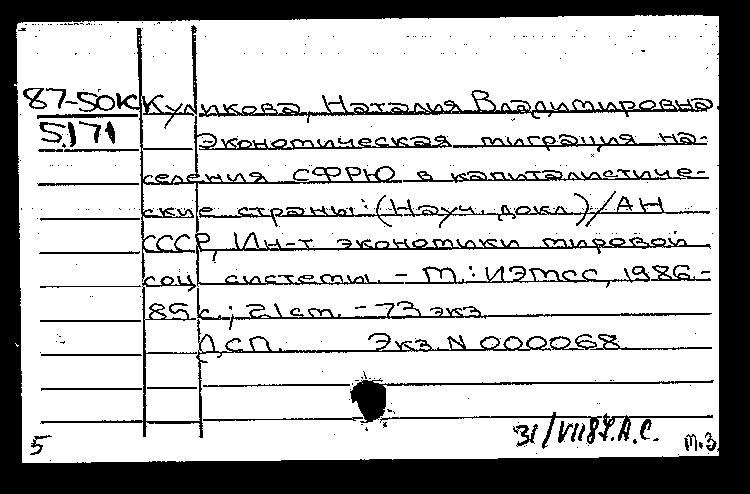 87-50К Куликова, Наталия Владимировна.
5171 Экономическая миграция на-
селения СФРЮ в капиталистиче-
ские страны: (Науч. докл.)/АН
СССР, Ин-т экономики мировой
соц. системы. - М.: ИЭМСС, 1986.-
85 с.; 21 см. - 73 экз.
ДСП. Экз. N 000068
31/VII 87. А.С.
5 т.з.